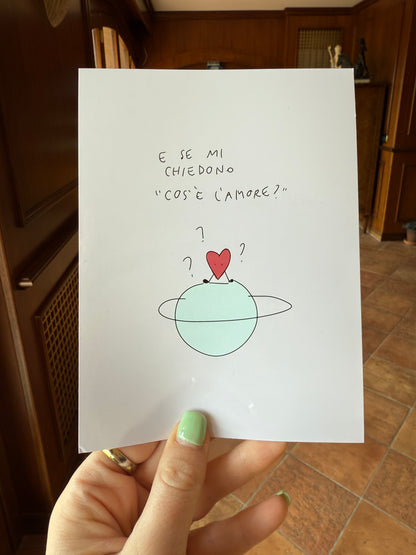 E SE MI
CHIEDONO
"COS'È L'AMORE?"
? 
? ?